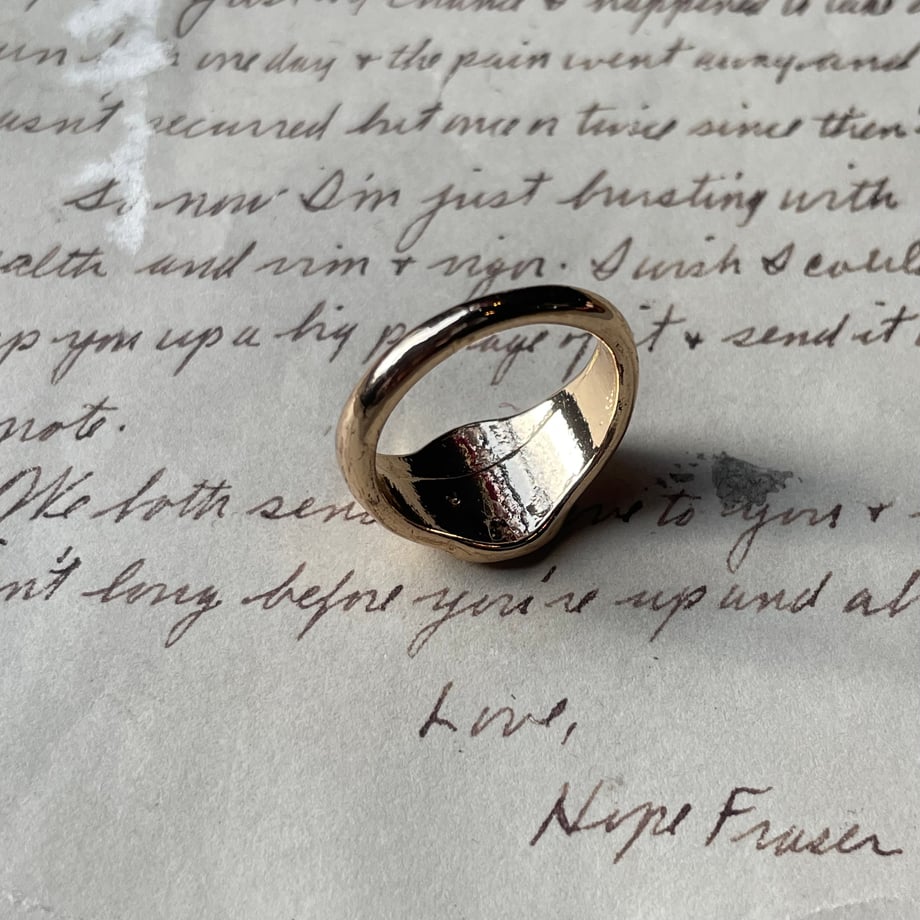 just chance & happened to
one day & the pain went away and
recurred but once or twice since then
So now I'm just bursting with
and vim & vigor. I wish I could
you up a big package of it & send it
note.
We both send love to you &
long before you're up and
Love,
Hope Fraser